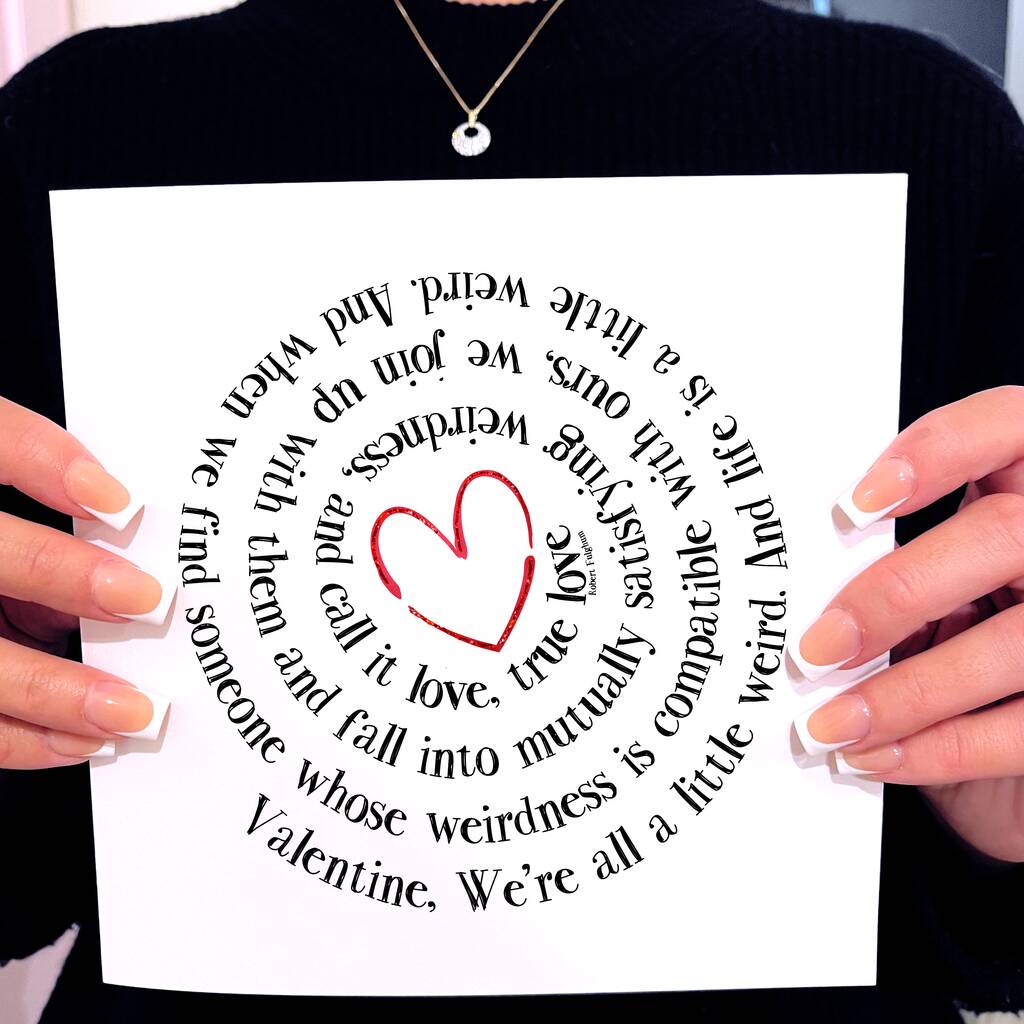 Valentine, We're all a little weird. And life is a little weird. And when we find someone whose weirdness is compatible with ours, we join up with them and fall into mutually satisfying weirdness, and call it love, true love
Robert Fulghum